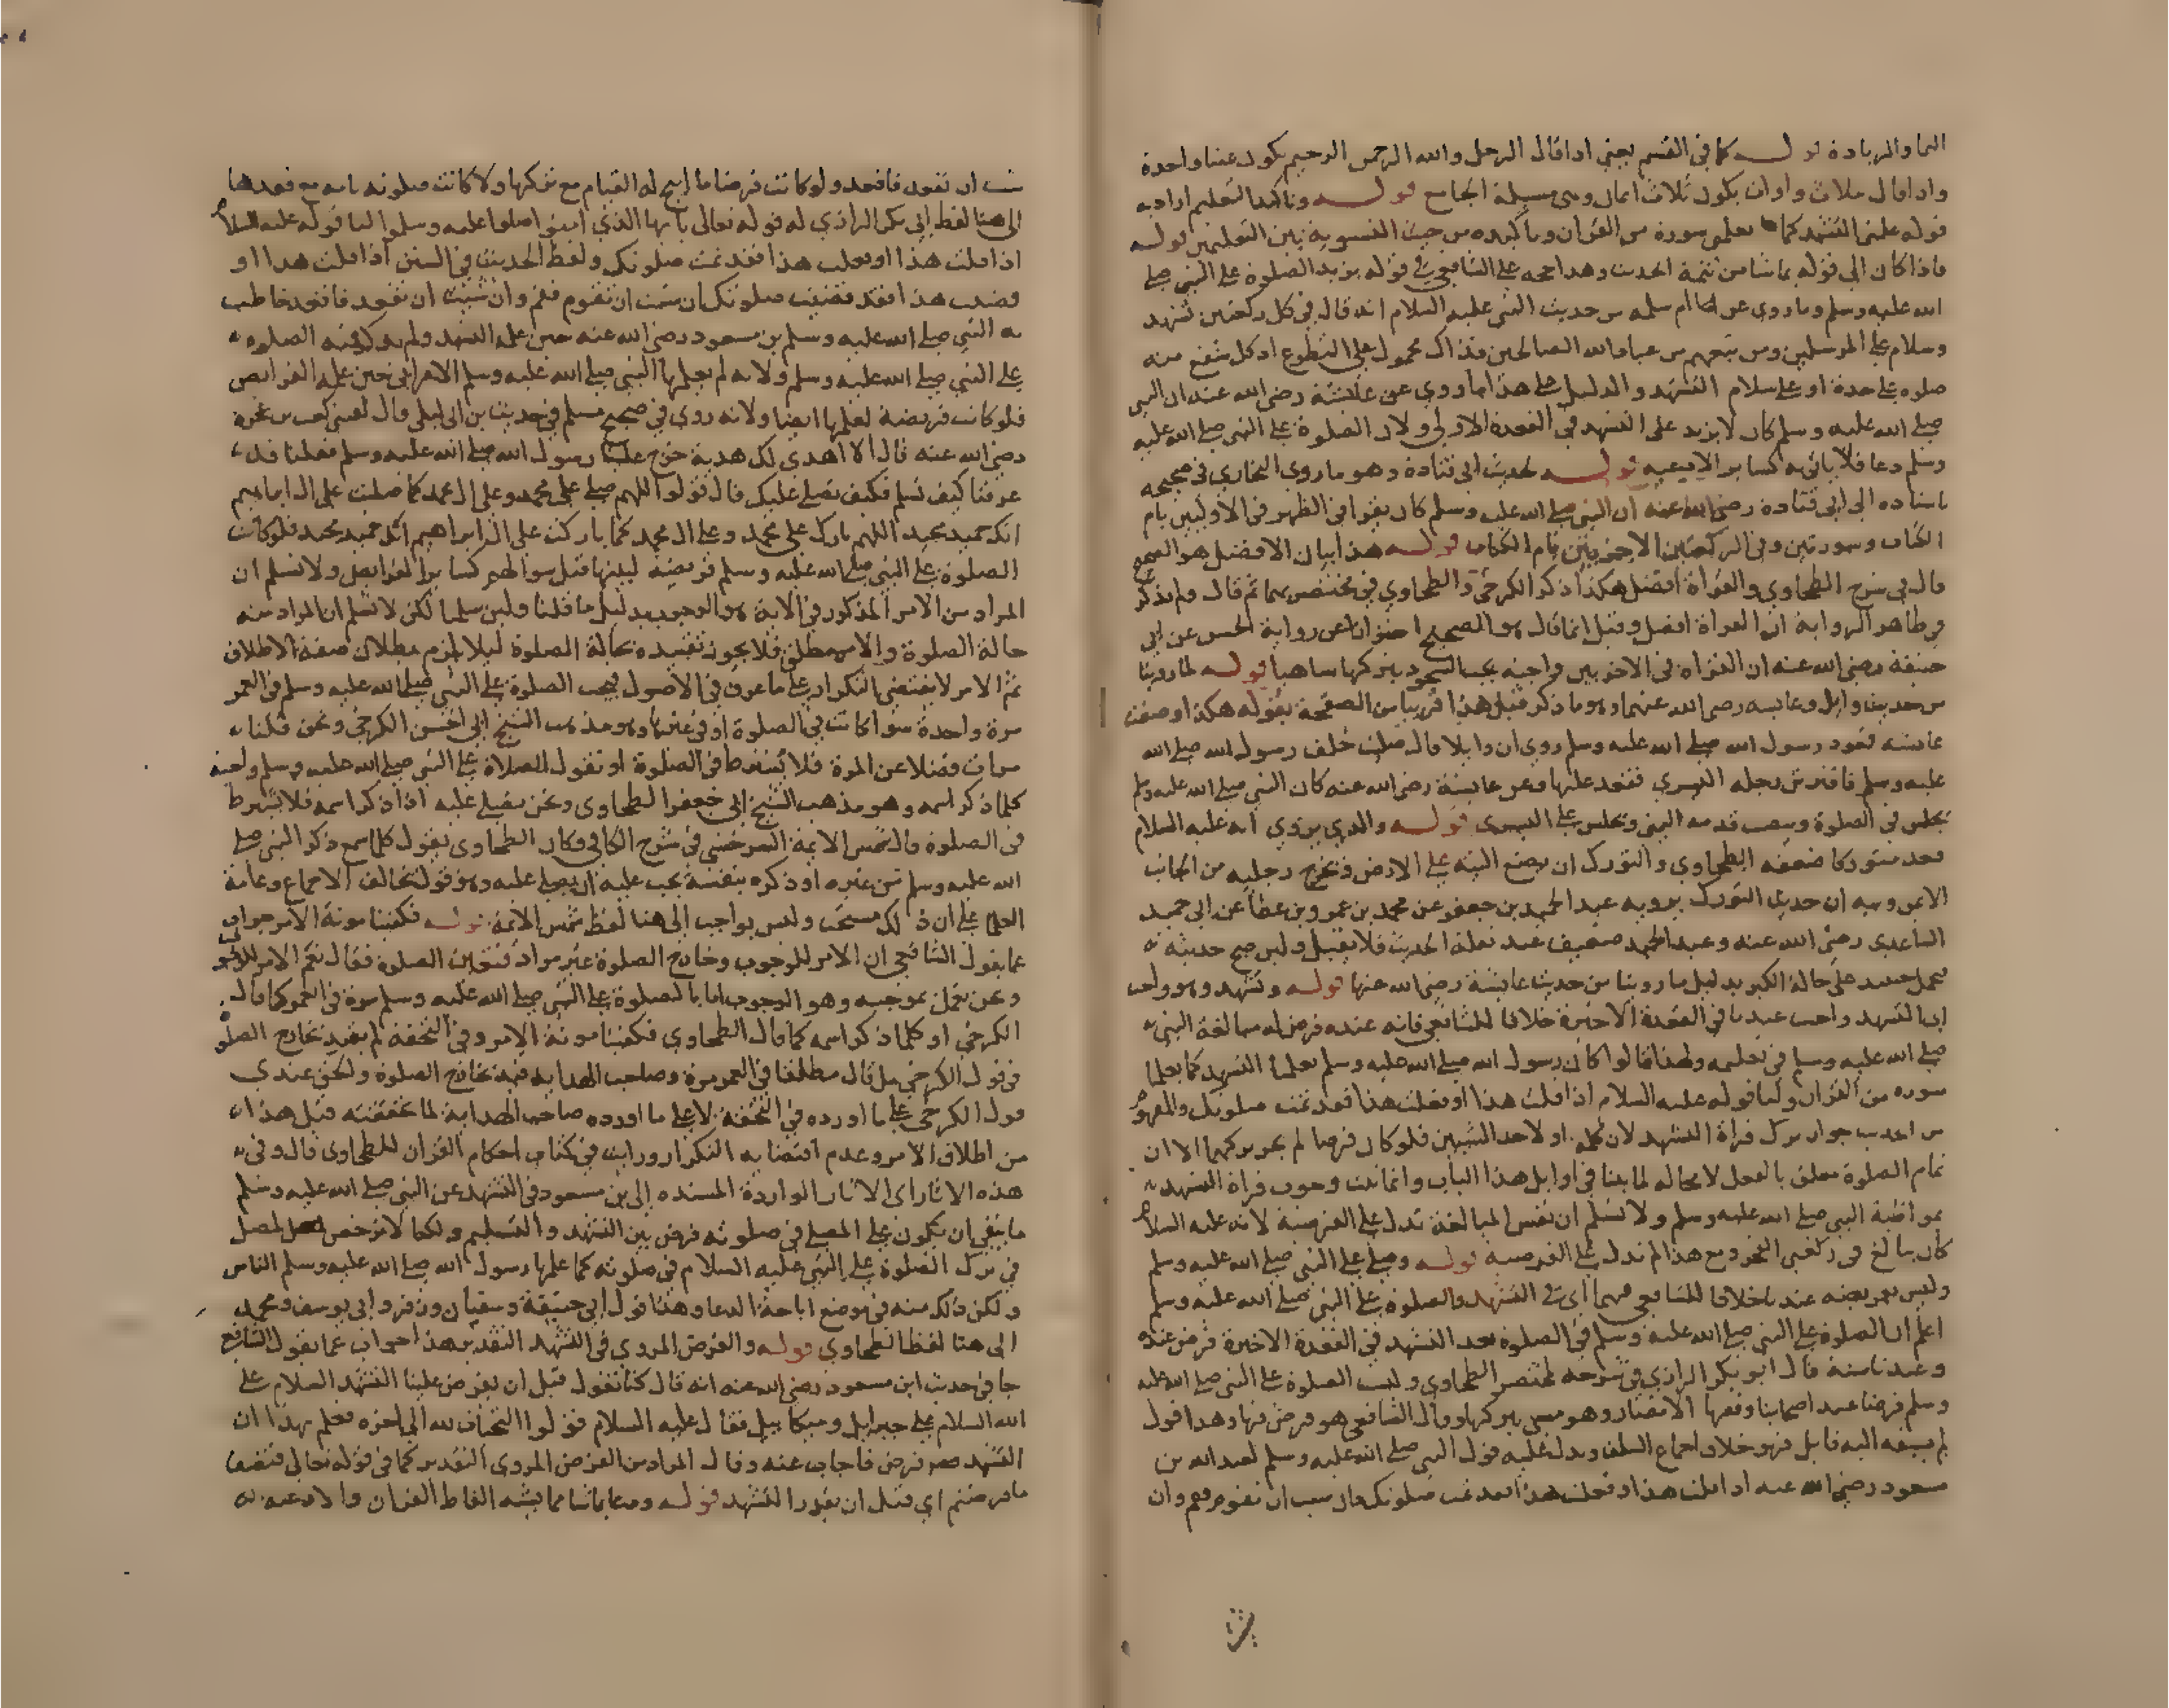 الثناء والزيادة قوله كما في القسم يعني اذا قال الرحمن والله الرحمن الرحيم يكون يمينا واحدة
واذا قال بثلاث واوات يكون ثلاث ايمان وهي مسيلة الجامع قوله وتاكيد التعليم اراد به
قوله علمني التشهد كما يعلمني سورة من القران وتاكيده من حيث التسوية بين التعليمين قوله
فاذا كان الى قوله بما شا من تتمة الحديث وهذا حجه على الشافعي في قوله يزيد الصلوة على النبي صلى
الله عليه وسلم وما روي عن ام سلمه من حديث النبي عليه السلام انه قال في كل ركعتين تشهد
وسلام على المرسلين ومن تبعهم من عباد الله الصالحين فذاك محمول على التطوع اذ كل شفع منه
صلوة على حدة او على سلام التشهد والدليل على هذا ما روي عن عائشة رضي الله عنه ان النبي
صلى الله عليه وسلم كان لا يزيد على التشهد في القعدة الاولى ولان الصلوة على النبي صلى الله عليه
وسلم دعا فلا ياتي به كسائر الادعيه قوله لحديث ابي قتادة وهو ما روى البخاري في صحيحه
باسناده الى ابي قتادة رضي الله عنه ان النبي صلى الله عليه وسلم كان يقرا في الظهر في الاوليين بام
الكتاب وسورتين وفي الركعتين الاخريين بام الكتاب قوله هذا بيان الافضل هو الصحيح
قال في شرح الطحاوي والقراة افضل هكذا ذكر الكرخي والطحاوي في مختصريهما ثم قال ولم يذكر
في ظاهر الرواية ان القراة افضل وقيل انما قال هو الصحيح احترازا عن رواية الحسن عن ابي
حنيفة رضي الله عنه ان القراة في الاخريين واجبة يجب السهو بتركها ساهيا قوله لما روينا
من حديث وايل وعايشه رضي الله عنهما وهو ما ذكر قبل هذا قريبا من الصفحة بقوله هكذا وصفت
عايشه قعود رسول الله صلى الله عليه وسلم روي ان وايلا قال صليت خلف رسول الله صلى الله
عليه وسلم فافترش رجله اليسرى فقعد عليها وعن عايشة رضي الله عنه كان النبي صلى الله عليه وسلم
يجلس في الصلوة وينصب قدمه اليمنى ويجلس على اليسرى قوله والذي يروي انه عليه السلام
قعد متوركا ضعفه الطحاوي والتورك ان يضع اليته على الارض ويخرج رجليه من الجانب
الايمن وفيه ان حديث التورك يرويه عبد الحميد بن جعفر عن محمد بن عمرو بن عطا عن ابي حميد
الساعدي رضي الله عنه وعبد الحميد ضعيف عند نقلة الحديث فلا يقبل ولين صح حديثه
يحمل على حالة الكبر بدليل ما روينا من حديث عايشة رضي الله عنها قوله وتشهد وهو واجب
ان التشهد واجب عندنا في القعدة الاخيرة خلافا للشافعي فانه عنده فرض له مبالغة النبي
صلى الله عليه وسلم في تعليمه ولهذا قالوا كان رسول الله صلى الله عليه وسلم يعلمنا التشهد كما يعلمنا
سورة من القران ولنا قوله عليه السلام اذا قلت هذا او فعلت هذا فقد تمت صلوتك والمفهوم
من الحديث جواز ترك قراة التشهد لان كلمة او لاحد الشيئين فلو كان فرضا لم يجز تركها الا ان
تمام الصلوة معلق بالفعل لا محاله لما بينا في اوايل هذا الباب وانما ثبت وجوب قراة التشهد
بمواظبة النبي صلى الله عليه وسلم ولا نسلم ان نفس المبالغة تدل على الفرضية لانه عليه السلام
كان يبالغ في ركعتي الفجر ومع هذا لم تدل على الفرضية قوله وصلى على النبي صلى الله عليه وسلم
وليس بفريضه عندنا خلافا للشافعي فيهما اي في التشهد والصلوة على النبي صلى الله عليه وسلم
اعلم ان الصلوة على النبي صلى الله عليه وسلم في الصلوة بعد التشهد في القعدة الاخيرة فرض عنده
وعندنا سنة قال ابو بكر الرازي في شرحه لمختصر الطحاوي وليست الصلوة على النبي صلى الله عليه
وسلم فرضا عند اصحابنا وفقها الامصار وهو مسي بتركها وقال الشافعي هو فرض فيها وهذا قول
لم يسبقه اليه قايل فهو خلاف اجماع السلف ويدل عليه قول النبي صلى الله عليه وسلم لعبد الله بن
مسعود رضي الله عنه اذا قلت هذا او فعلت هذا فقد تمت صلوتك فان شيت ان تقوم فقم وان
شيت ان تقعد فاقعد ولو كانت فرضا ما ابيح له القيام مع تركها ولا كانت صلوته تامه مع فقدها
الى هنا لفظ ابي بكر الرازي له قوله تعالى يا ايها الذين امنوا صلوا عليه وسلموا لنا قوله عليه السلام
اذا قلت هذا او فعلت هذا فقد تمت صلوتك ولفظ الحديث في السنن اذا قلت هذا او
قضيت هذا فقد قضيت صلوتك ان شيت ان تقوم فقم وان شيت ان تقعد فاقعد خاطب
به النبي صلى الله عليه وسلم بن مسعود رضي الله عنه حين علمه التشهد ولم يذكر فيه الصلوه
على النبي صلى الله عليه وسلم ولانه لم يعلمها النبي صلى الله عليه وسلم الاعرابي حين علمه الفرايض
فلو كانت فريضة لعلمها ايضا ولانه روي في صحيح مسلم في حديث بن ابي ليلى قال لقيني كعب بن عجرة
رضي الله عنه قال الا اهدي لك هدية خرج علينا رسول الله صلى الله عليه وسلم فقلنا قد
عرفنا كيف نسلم فكيف نصلي عليك قال قولوا اللهم صلي على محمد وعلى ال محمد كما صليت على ال ابراهيم
انك حميد مجيد اللهم بارك على محمد وعلى ال محمد كما باركت على ال ابراهيم انك حميد مجيد فلو كانت
الصلوة على النبي صلى الله عليه وسلم فريضه لبينها قبل سوالهم كسائر الفرايض ولا نسلم ان
المراد من الامر المذكور في الاية هو الوجوب بدليل ما قلنا ولين سلمنا لكن لا نسلم ان المراد منه
حالة الصلوة والامر مطلق فلا يجوز تقييده بحالة الصلوة ليلا يلزم بطلان صفة الاطلاق
ثم الامر لا يقتضي التكرار على ما عرف في الاصول فيجب الصلوة على النبي صلى الله عليه وسلم في العمر
مرة واحدة سوا كانت في الصلوة او في غيرها وهو مذهب الشيخ ابي الحسن الكرخي ونحن قلنا
مرات فضلا عن المرة فلا يشترط في الصلوة او نقول الصلاة على النبي صلى الله عليه وسلم واجبة
كلما ذكر اسمه وهو مذهب الشيخ ابي جعفر الطحاوي ونحن نصلي عليه اذا ذكر اسمه فلا يشترط
في الصلوة قال شمس الايمة السرخسي في شرح الكافي وكان الطحاوي يقول كلما سمع ذكر النبي صلى
الله عليه وسلم من غيره او ذكره بنفسه يجب عليه ان يصلي عليه وهو قول يخالف الاجماع وعامة
العلما على ان ذلك مستحب وليس بواجب الى هنا لفظ شمس الايمة قوله فكفينا مونة الامر جواب
عما يقول الشافعي ان الامر للوجوب وخارج الصلوة غير مراد فتعين الصلوة فقال نعم الامر للوجوب
ونحن نعمل بموجبه وهو الوجوب اما بالصلوة على النبي صلى الله عليه وسلم مرة في العمر كما قال
الكرخي او كلما ذكر اسمه كما قال الطحاوي فكفينا مونة الامر وفي التحفة لم يقيد بخارج الصلوة
في قول الكرخي بل قال مطلقا في العمر مرة وصاحب الهدايه قيد بخارج الصلوة ولكن عندي
قول الكرخي على ما اورده في التحفة لا على ما اورده صاحب الهداية لما تحققته قبل هذا
من اطلاق الامر وعدم اقتضايه التكرار ورايت في كتاب احكام القران للطحاوي قال وفي
هذه الاثار اي الاثار الواردة المسنده الى بن مسعود في التشهد عن النبي صلى الله عليه وسلم
ما ينفي ان يكون على المصلي في صلوته فرض بين التشهد والتسليم ولكنا لا نرخص لمصل
في ترك الصلوة على النبي عليه السلام في صلوته كما علمها رسول الله صلى الله عليه وسلم الناس
ولكن ذلك منه في موضع اباحة الدعا وهذا قول ابي حنيفة وسفيان وزفر وابي يوسف ومحمد
الى هنا لفظ الطحاوي قوله والفرض المروي في التشهد التقدير هذا جواب عما يقول الشافعي
جا في حديث ابن مسعود رضي الله عنه انه قال كنا نقول قبل ان يفرض علينا التشهد السلام على
الله السلام على جبرايل وميكاييل فقال عليه السلام قولوا التحيات لله الى اخره فعلم بهذا ان
التشهد فرض فاجاب عنه وقال المراد من الفرض المروي التقدير كما في قوله تعالى فنصف
ما فرضتم اي قبل ان يقدر التشهد قوله ودعا بما شا مما يشبه الفاظ القران والادعيه